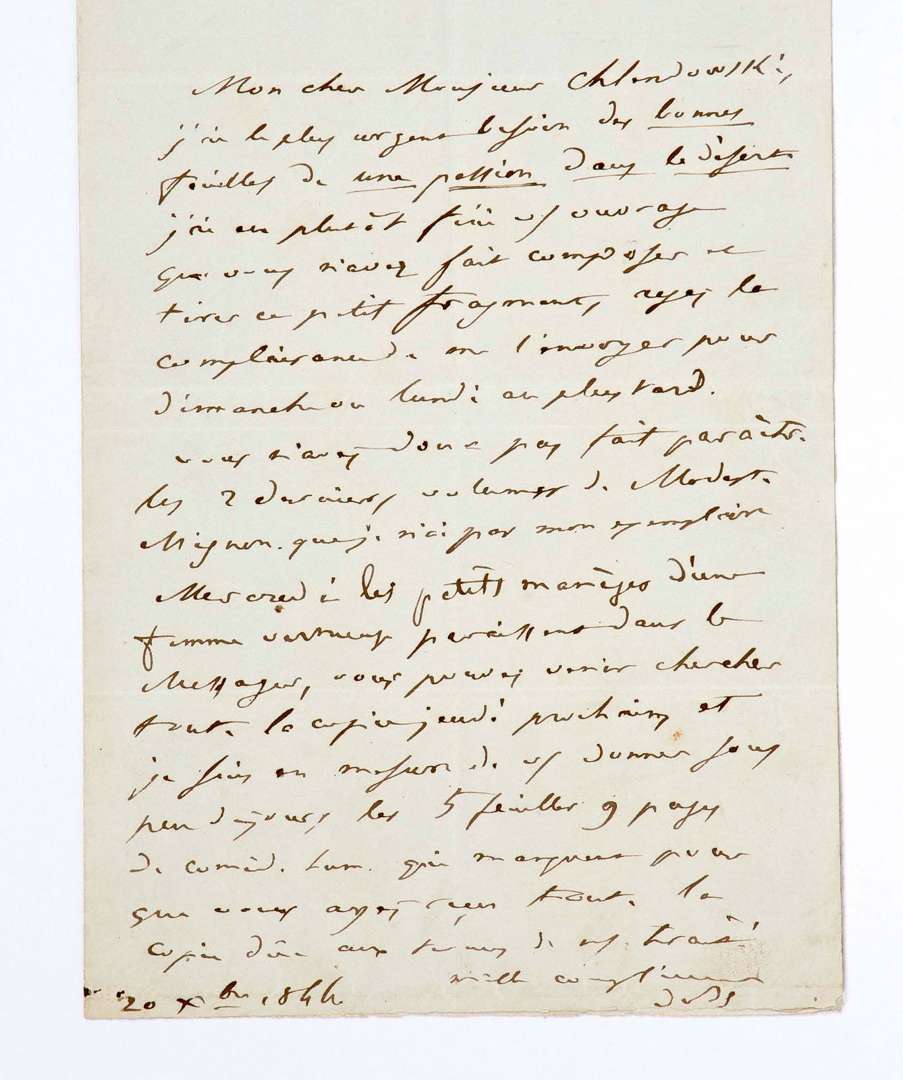 Mon cher Monsieur Chlendowski,
j'ai le plus urgent besoin des bonnes
feuilles de une passion dans le désert
j'ai eu plutôt fini ouvrage
que vous n'avez fait composer et
tirer ce petit fragment, ayez la
complaisance de me l'envoyer pour
dimanche ou lundi au plus tard.
vous n'avez donc pas fait paraître
les 2 derniers volumes de Modeste
Mignon. que je n'ai pas mon exemplaire
Mercredi les petits manèges d'une
femme vertueuse paraissent dans le
Messager, vous pouvez venir chercher
toute la copie jeudi prochain, et
je suis en mesure de vs donner sous
peu de jours les 5 feuilles 9 pages
de coméd. hum. qui manquent pour
que vous ayez reçu toute la
copie dûe aux termes de traité
mille compliments
20 Xbre 1844 deBc